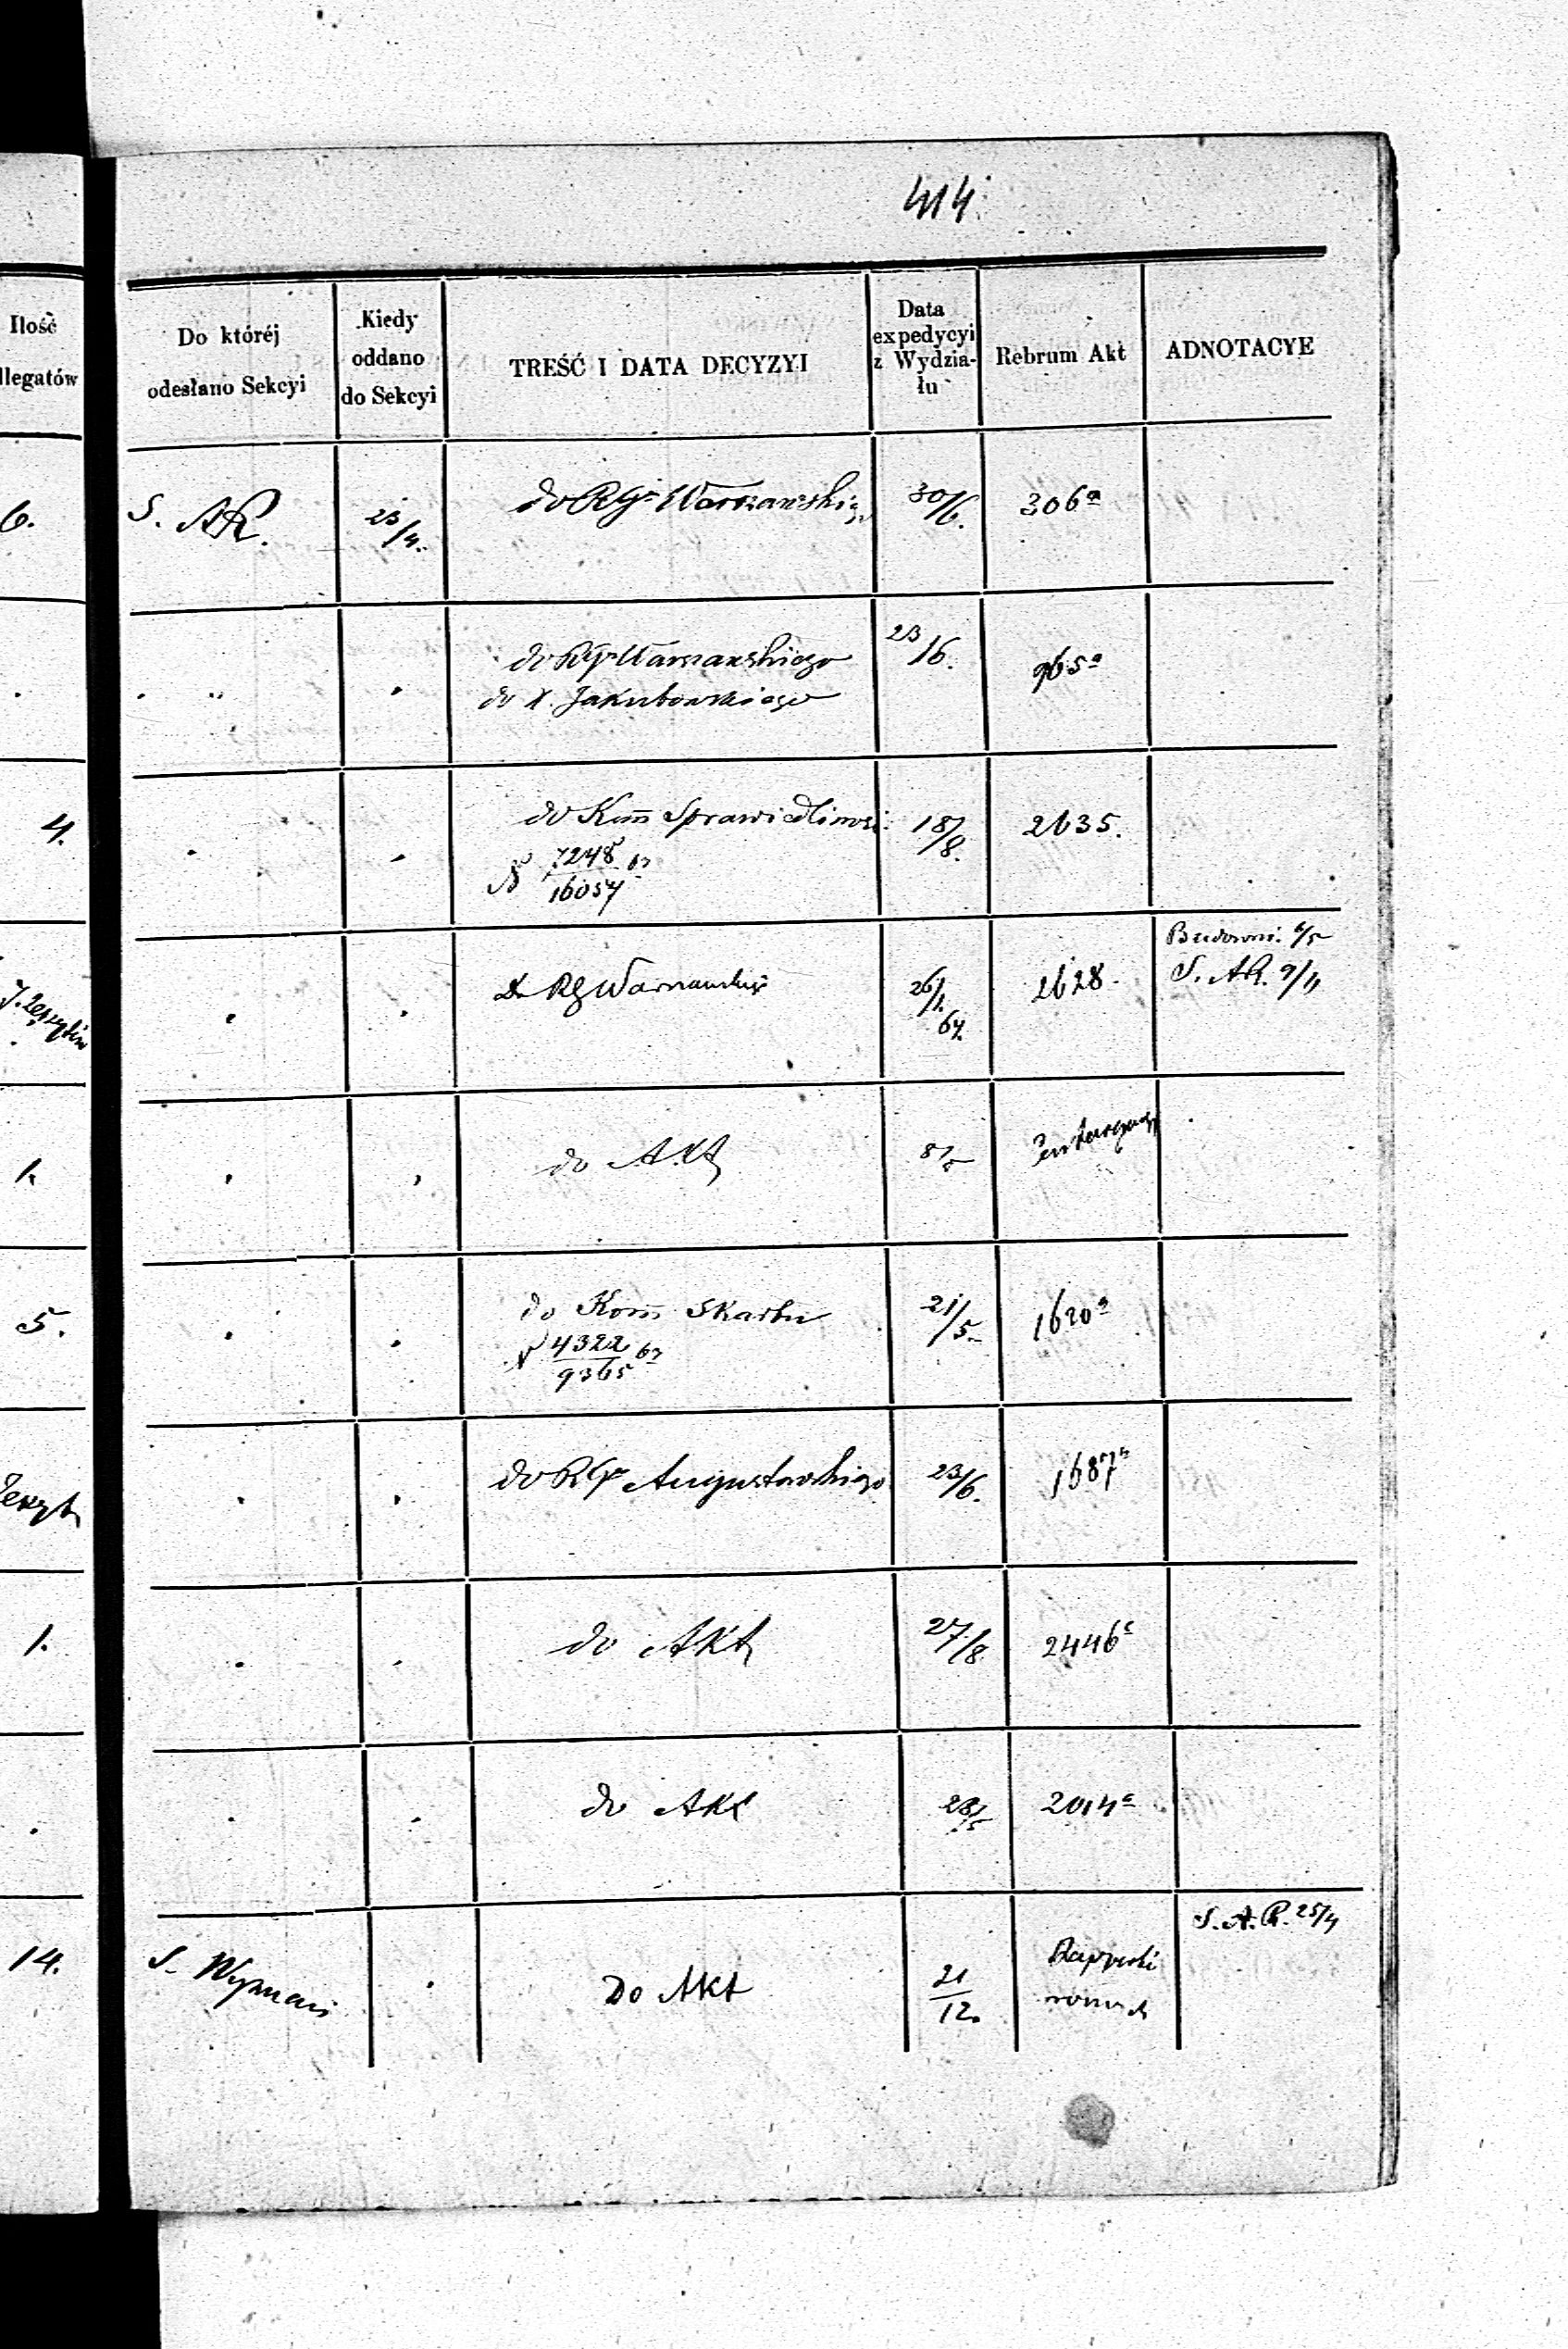 414.
Ilość
llegatów
Do któréj
odesłano Sekcyi
Kiedy
oddano
do Sekcyi
TREŚĆ I DATA DECYZYI
Data
expedycyi
z Wydzia-
łu
Rebrum Akt
ADNOTACYE
6. S. AR. 23/4. do RGr Warszawskieg 30/6. 306a
do RGr Warszawskiego 23/6. 965a
do X. Jakubowskiego
4. do Kom Sprawiedliwoś. 18/8. 2635.
N 7248/16054 67
Budowni. 6/5
do RG Warszawskieg 26/1 67. 2628. S. AR. 9/4
1. do Akt 8/5
5. do Kom Skarbu 21/5. 1620a
N 4322/9365 67
Zeszyt do RGr Augustowskiego 23/6. 1687
1. do Akt 27/8 2446c
do Akt 28/5 2014c
S. A. R. 25/4
14. S. Wyznań Do Akt 21/12.